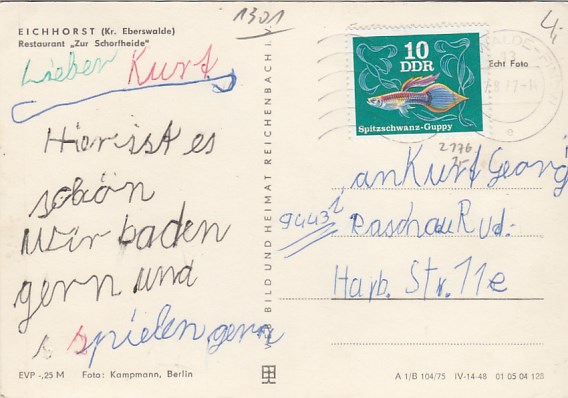 EICHHORST (Kr. Eberswalde)
Restaurant „Zur Schorfheide"
Lieber Kurt
Hier isst es
schön
Wir baden
gern und
s spielen gern
EVP -,25 M Foto: Kampmann, Berlin
VEB BILD UND HEIMAT REICHENBACH i. V.
1301
4i
10
DDR
Spitzschwanz-Guppy
Echt Foto
2176
an Kurt Georg
9443
Raschau R.
Harb. Str. 11e
A 1/B 104/75 IV-14-48 01 05 04 128